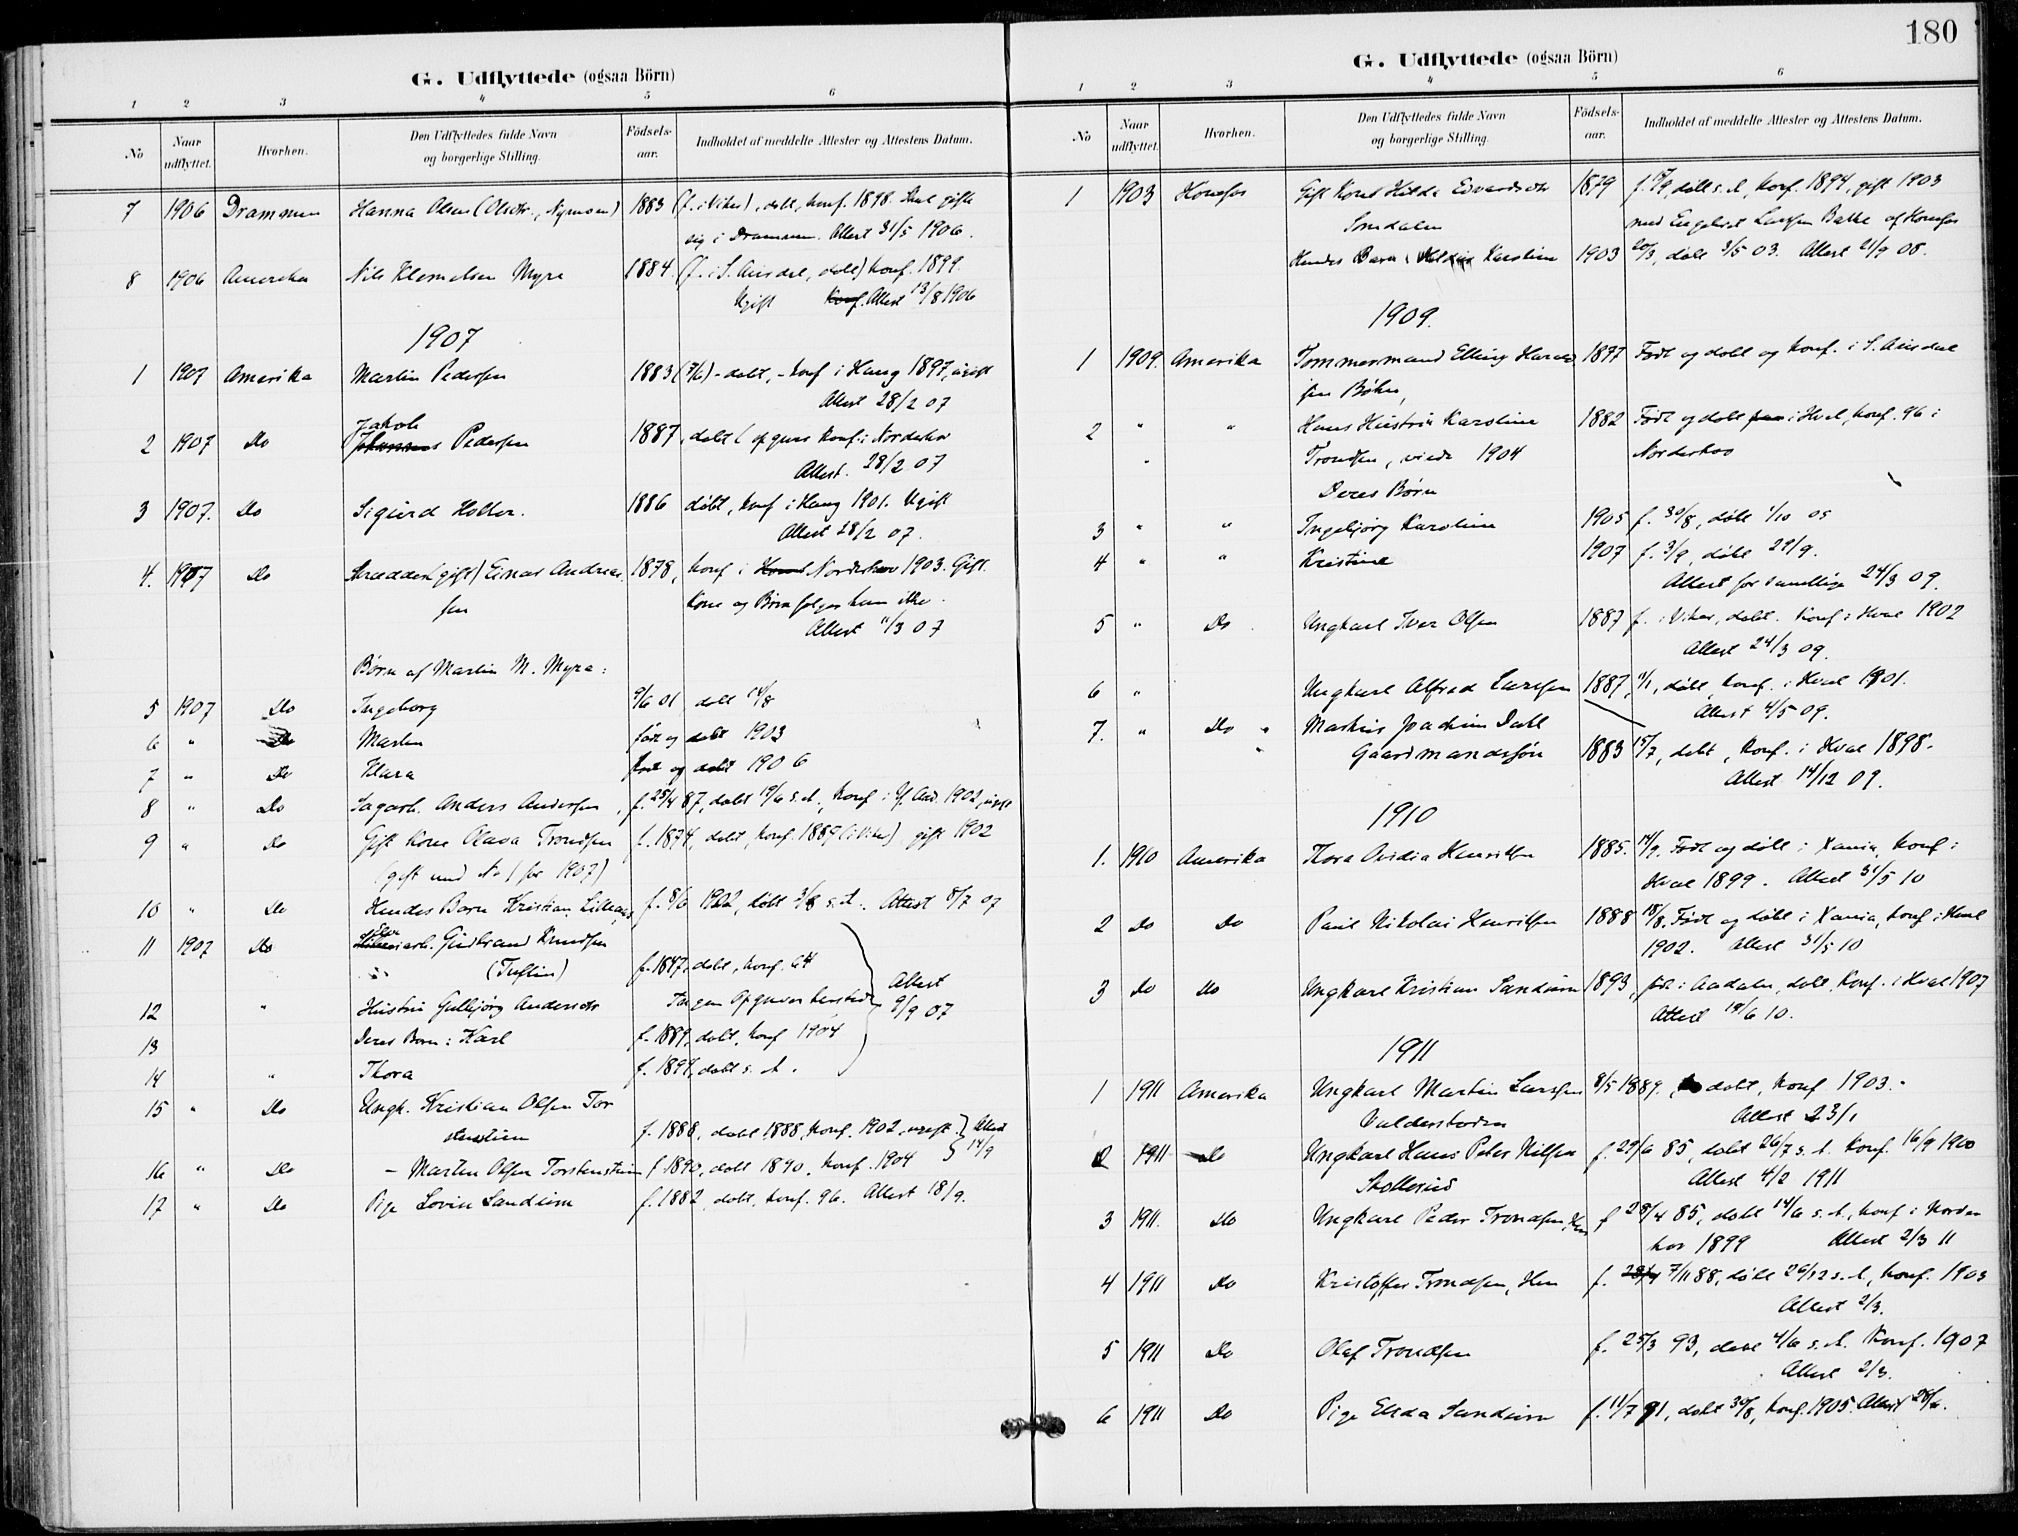 G. Udflyttede (ogsaa Börn)
1 2 3 4 5 6
No Naar udflyttet. Hvorhen. Den Udflyttedes fulde Navn og borgerlige Stilling. Födsels-aar. Indholdet af meddelte Attester og Attestens Datum.
7 1906 Drammen Hanna Olsen (Olsdtr., Nymoen) 1883 (f. i Viker), døbt, konf. 1898. Skal gifte
sig i Drammen. Attest 31/5 1906.
8 1906 Amerika Nils Klemetsen Myra 1884 (f. i S. Aurdal, døbt) konf. 1899.
Ugift Konf. Attest 13/8 1906
1907
1 1907 Amerika Martin Pedersen 1883 døbt, konf i Haug 1897, ugift
Attest 28/2 07
Jakob
2 1907 Do Johannes Pedersen 1887, døbt konf. i Norderhov
Attest. 28/2 07
3 1907. Do Sigurd Holter. 1886 døbt, konf i Haug 1901. Ugift
Attest 28/2 07.
4. 1907 Do Skrædder (gift) Einar Andreas 1878, konf i Norderhov 1903. Gift.
sen Kone og Børn følger ham ikke.
Attest 11/3 07
Børn af Martin M. Myra:
5 1907 Do Ingeborg 9/6 01 døbt 14/8
6 " Do Martin født og døbt 1903
7 " Do Klara født og døbt 1906
8 " Do Sagarb. Anders Andersen, f. 25/4 87, døbt 19/6 s. A., Konf. i Y. Aad. 1902, ugift
9 " Do Gift Kone Olava Trondsen f. 1874, døbt, konf. 1889 (i Viker), gift 1902
(gift med No 1 for 1907)
10 " Do Hendes Barn Kristian f. 8/6 1902, døbt 3/8 s. A. Attest 8/7 07
11 1907 Do Gudbrand Knudsen
(Tuftin) f. 1847, døbt, konf. 64
12 " Hustru Gulbjørg Andersdtr Ingen Opgaver Attest 9/9 07
13 Deres Børn: Karl f. 1889, døbt, konf 1904
14 " Thora f. 1894, døbt s. A.
15 " Do Ungk. Kristian Olsen Tor
stenstuen f. 1888, døbt 1888, konf. 1902, ugift. Attest
16 " Do – Martin Olsen Torstenstuen f 1890, døbt 1890, konf. 1904 14/9
17 " Do Pige Lovise Sandum f. 1882, døbt, konf. 96. Attest 18/9.
180
G. Udflyttede (ogsaa Börn)
1 2 3 4 5 6
No Naar udflyttet. Hvorhen. Den Udflyttedes fulde Navn og borgerlige Stilling. Födsels-aar. Indholdet af meddelte Attester og Attestens Datum.
1 1903 Hønefos Gift Kone Hilda Edvardsdtr 1879 døbt s. A, konf. 1894, gift 1903
Somdalen med Engebret Larsen Bakke af Hønefos
Hendes Barn Karoline 1903 20/3, døbt 3/5 03. Attest 21/9 08.
1909.
1 1909. Amerika Tømmermand Elling Harald 1877 Født og døbt og konf. i S. Aurdal
sen Bøhn,
2 " " Hans Hustru Karoline 1882 Født og døbt i Hval, konf. 96 i
" Trondsen, viede 1904 Norderhov
Deres Børn
3 " " Ingebjørg Karoline 1905 f. 30/8, døbt 1/10 05
4 " " Kristine 1907 f. 3/9, døbt 29/9.
Attest for samtlige 24/3 09.
5 " Do Ungkarl Iver Olsen 1887 f. i Viker, døbt. Konf. i Hval 1902
Attest 24/3 09.
6 " Ungkarl Alfred Larsen 1887, døbt, konf. i Hval 1901.
Attest 4/5 09.
7. " Do Markus Joachim Dahl
" Gaardmandssøn 1883 15/7, døbt, konf. i Hval 1898.
Attest 14/12 09.
1910
1. 1910 Amerika Thora Ovidia Henriksen 1885. 14/9. Født og døbt i Xania, konf. i
Hval 1899. Attest 31/5 10
2 Do Do Paul Nikolai Henriksen 1888 18/8. Født og døbt i Xania, konf. i Hval
1902. Attest 31/5 10
3 Do Do Ungkarl Kristian Sandum 1893, født i Aadalen, døbt, Konf. i Hval 1907
Attest 19/6 10.
1911
1 1911 Amerika Ungkarl Martin Larsen 8/5 1889. døbt, konf 1903.
Attest 23/1
2 1911 Do Ungkarl Hans Peter Nilsen f. 29/6 85, døbt 26/7 s. A. Konf. 16/9 1900
Skollerud Attest 4/2 1911
3 1911. Do Ungkarl Peder Trondsen, Hen f 28/4 85, døbt 14/6 s. A., konf i Norder
hov 1899 Attest 2/3 11
4 1911 Do Kristoffer Trondsen, Hen f. 7/11 88, døbt 29/12 s. A., konf. 1903
Attest 2/3.
5 1911 Do Olaf Trondsen f. 25/3 93, døbt 4/6 s. A. Konf. 1907
Attest 2/3.
6 1911 Do Pige Elida Sandum f. 11/7 91, døbt 30/8, konf. 1905. Attest